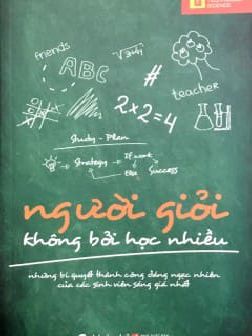 SCIENCE
friends
ABC
#
teacher
2x2=4
Study - Plan
Strategy
If work
Else
Success
người giỏi
không bởi học nhiều
những bí quyết thành công đáng ngạc nhiên
của các sinh viên sáng giá nhất